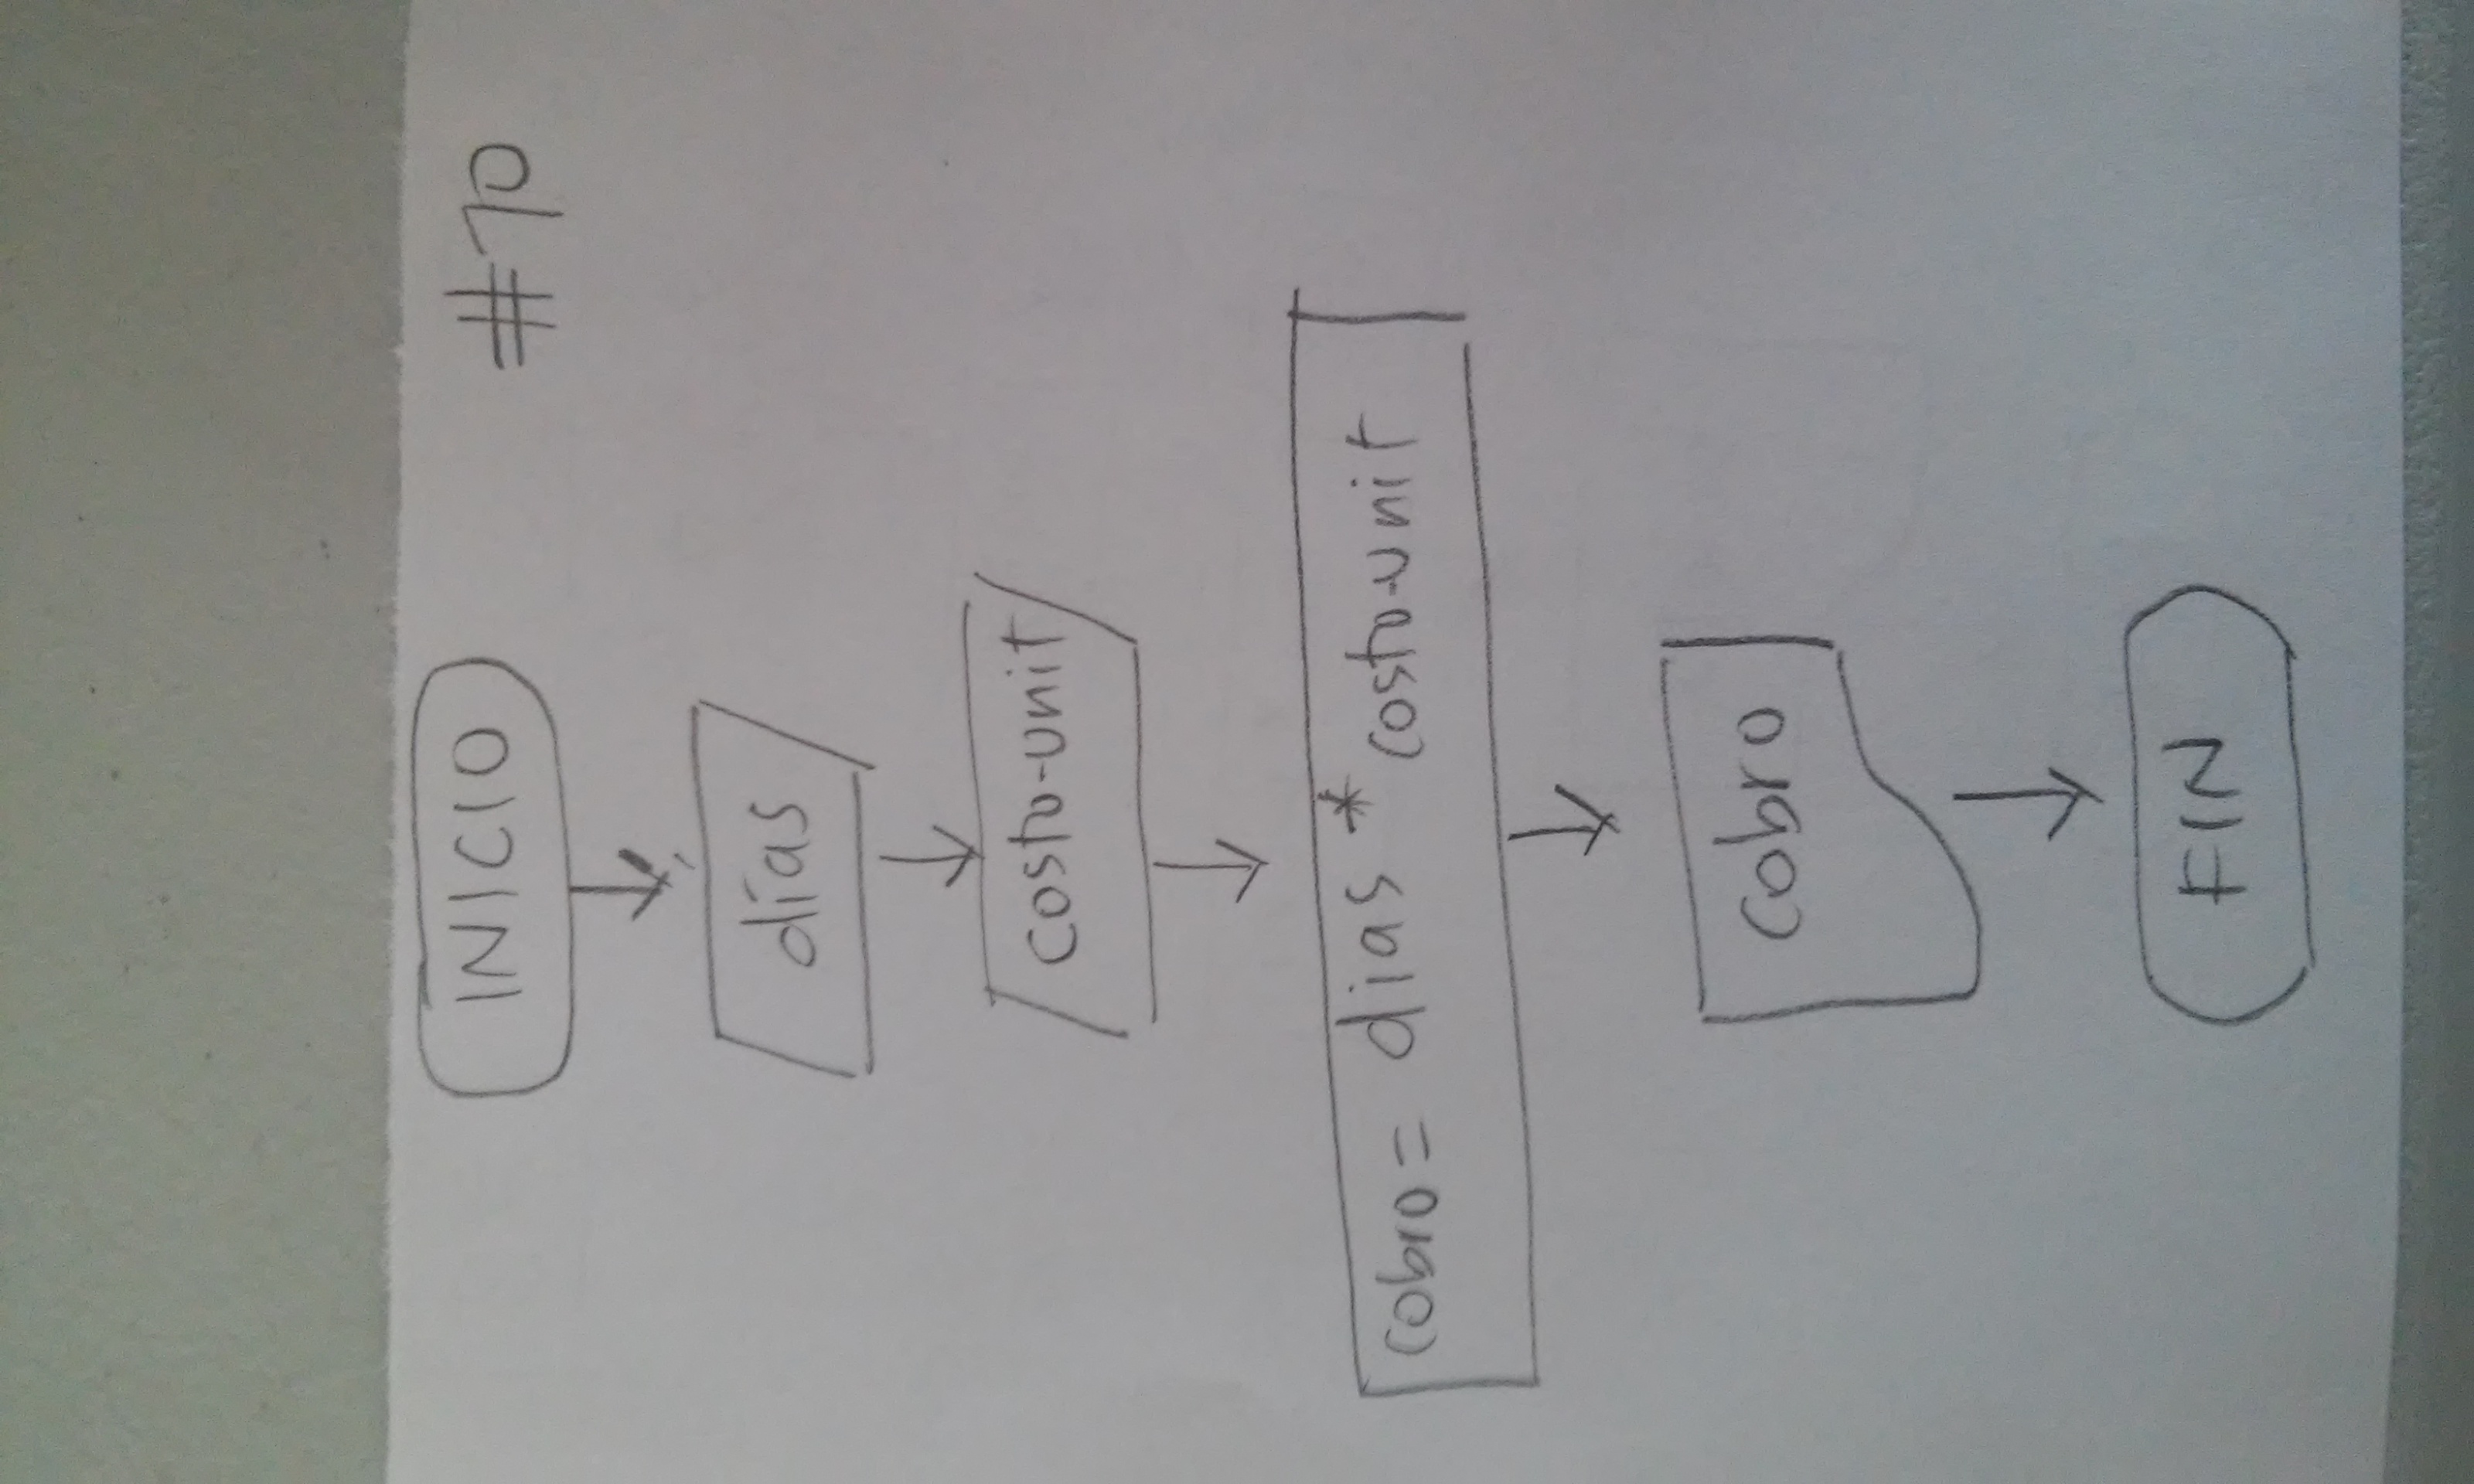 INICIO
#10
días
costo-unit
cobro = dias * costo-unit
cobro
FIN